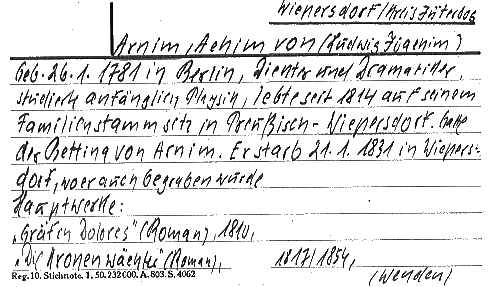 Wiepersdorf/Kreis Jüterbog
Arnim, Achim von (Ludwig Joachim)
Geb. 26.1.1781 in Berlin, Dichter und Dramatiker,
studierte anfänglich Physik, lebte seit 1814 auf seinem
Familienstammsitz in Preußisch-Wiepersdorf. Gatte
der Bettina von Arnim. Er starb 21.1.1831 in Wiepers-
dorf, wo er auch begraben wurde
Hauptwerke:
„Gräfin Dolores" (Roman), 1810,
„Die Kronenwächter" (Roman), 1817/1854,
Reg. 10. Stichnote. 1, 50. 232000. A. 803. S. 4062
(wenden)